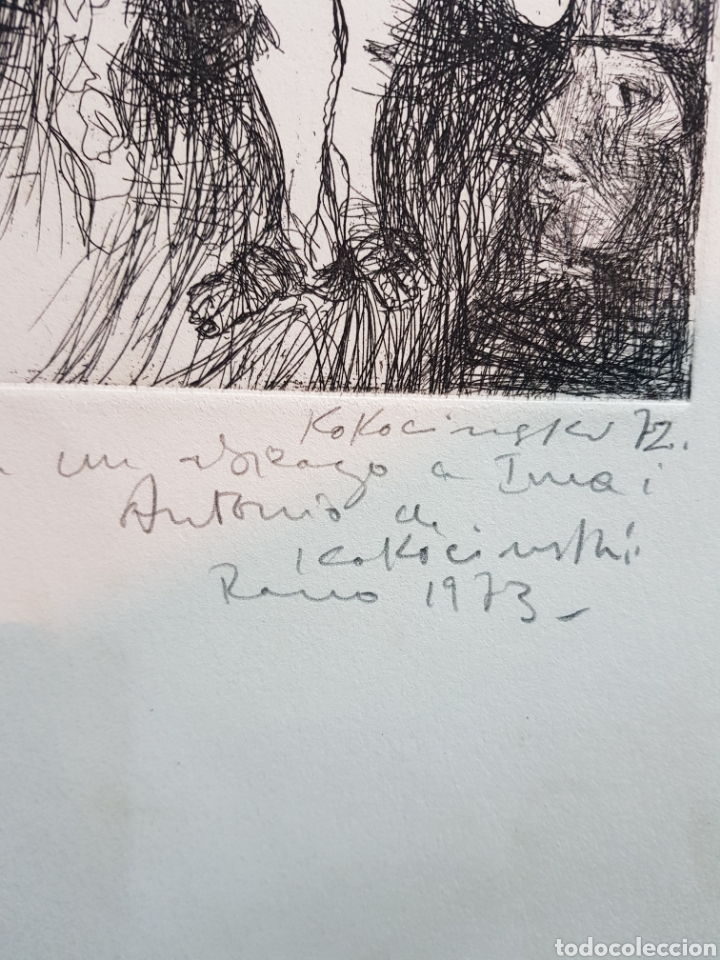 Kokocinski 72.
un abrazo a Ima i
Antonio de
Kokocinski
Roma 1973 –
todocoleccion